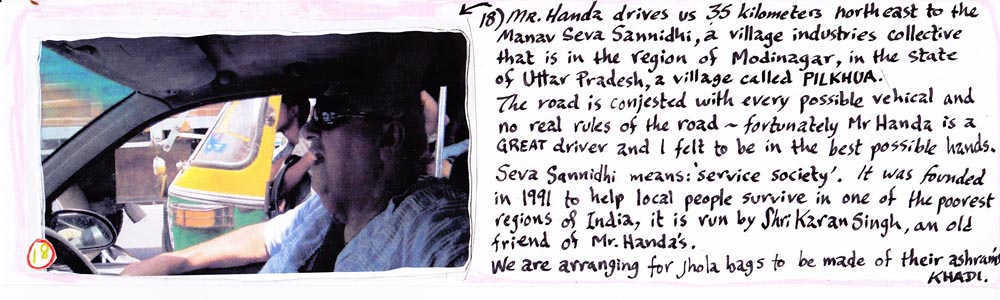 18) MR. Handa drives us 35 kilometers northeast to the
Manav Seva Sannidhi, a village industries collective
that is in the region of Modinagar, in the state
of Uttar Pradesh, a village called PILKHUA.
The road is conjested with every possible vehical and
no real rules of the road ~ fortunately Mr Handa is a
GREAT driver and I felt to be in the best possible hands.
Seva Sannidhi means: 'service society'. It was founded
in 1991 to help local people survive in one of the poorest
regions of India, it is run by Shri Karan Singh, an old
friend of Mr. Handa's.
We are arranging for jhola bags to be made of their ashram's
KHADI.
18